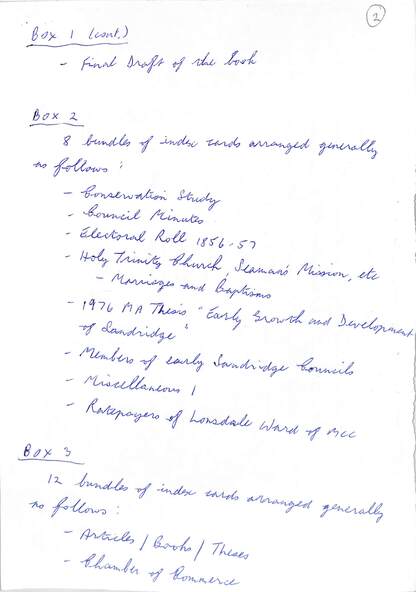 2
Box 1 (cont.)
- Final Draft of the book
Box 2
8 bundles of index cards arranged generally
as follows:
- Conservation Study
- Council Minutes
- Electoral Roll 1856-57
- Holy Trinity Church, Seaman's Mission, etc
- Marriages and Baptisms
- 1976 MA Thesis "Early Growth and Development
of Sandridge"
- Members of early Sandridge Councils
- Miscellaneous 1
- Ratepayers of Lonsdale Ward of MCC
Box 3
12 bundles of index cards arranged generally
as follows:
- Articles / Books / Theses
- Chamber of Commerce